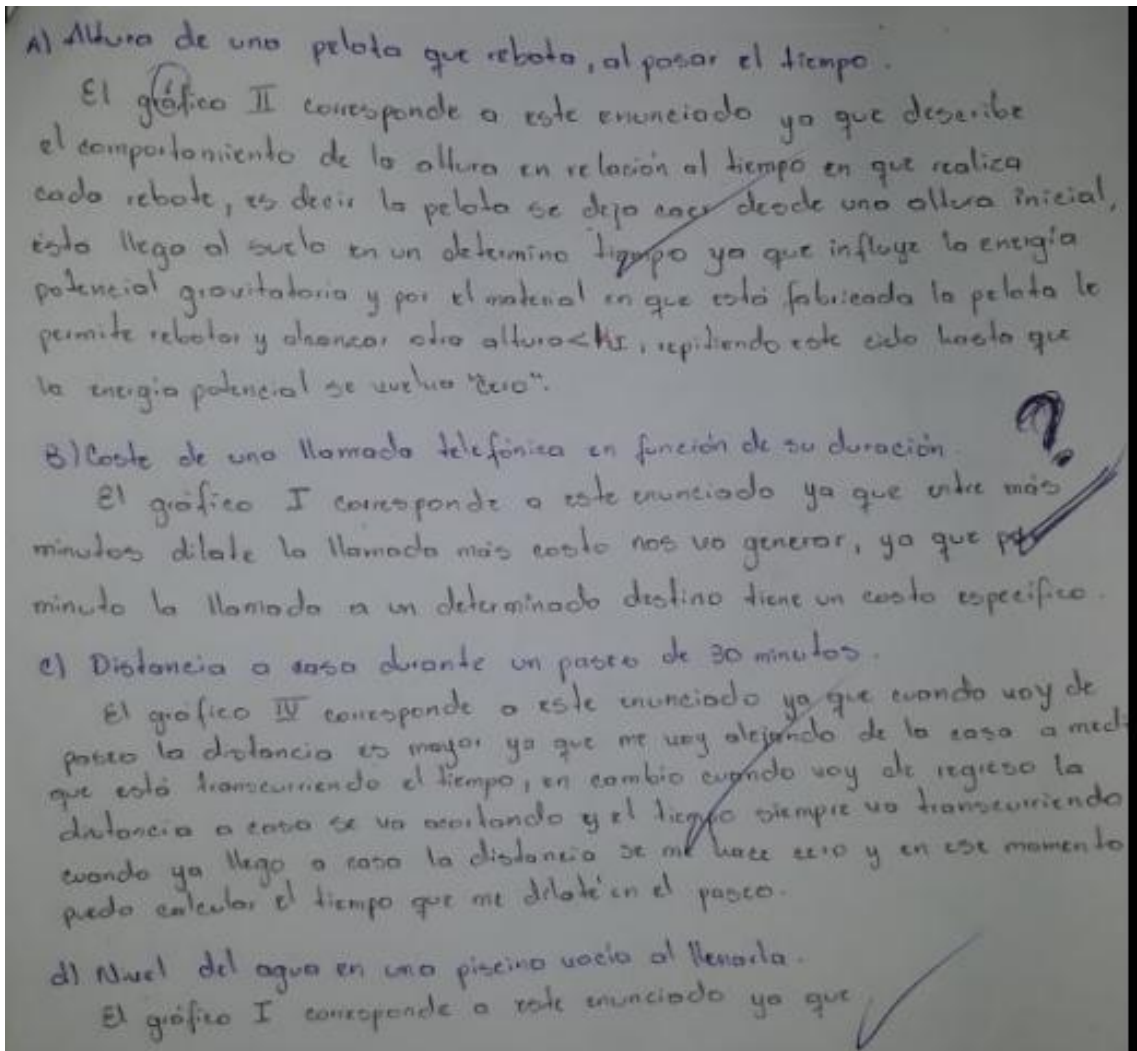 A) Altura de una pelota que rebota, al pasar el tiempo.
El gráfico II corresponde a este enunciado ya que describe
el comportamiento de la altura en relación al tiempo en que realiza
cada rebote, es decir la pelota se deja caer desde una altura inicial,
ésta llega al suelo en un determino tiempo ya que influye la energía
potencial gravitatoria y por el material en que está fabricada la pelota le
permite rebotar y alcanzar otra altura <, repitiendo este ciclo hasta que
la energía potencial se vuelva "cero".
?
B) Coste de una llamada telefónica en función de su duración.
El gráfico I corresponde a este enunciado ya que entre más
minutos dilate la llamada más costo nos va generar, ya que por
minuto la llamada a un determinado destino tiene un costo específico.
c) Distancia a casa durante un paseo de 30 minutos.
El gráfico IV corresponde a este enunciado ya que cuando voy de
paseo la distancia es mayor ya que me voy alejando de la casa a medi
que está transcurriendo el tiempo, en cambio cuando voy de regreso la
distancia a casa se va acortando y el tiempo siempre va transcurriendo
cuando ya llego a casa la distancia se me hace cero y en ese momento
puedo calcular el tiempo que me dilaté en el paseo.
d) Nivel del agua en una piscina vacía al llenarla.
El gráfico I corresponde a este enunciado ya que